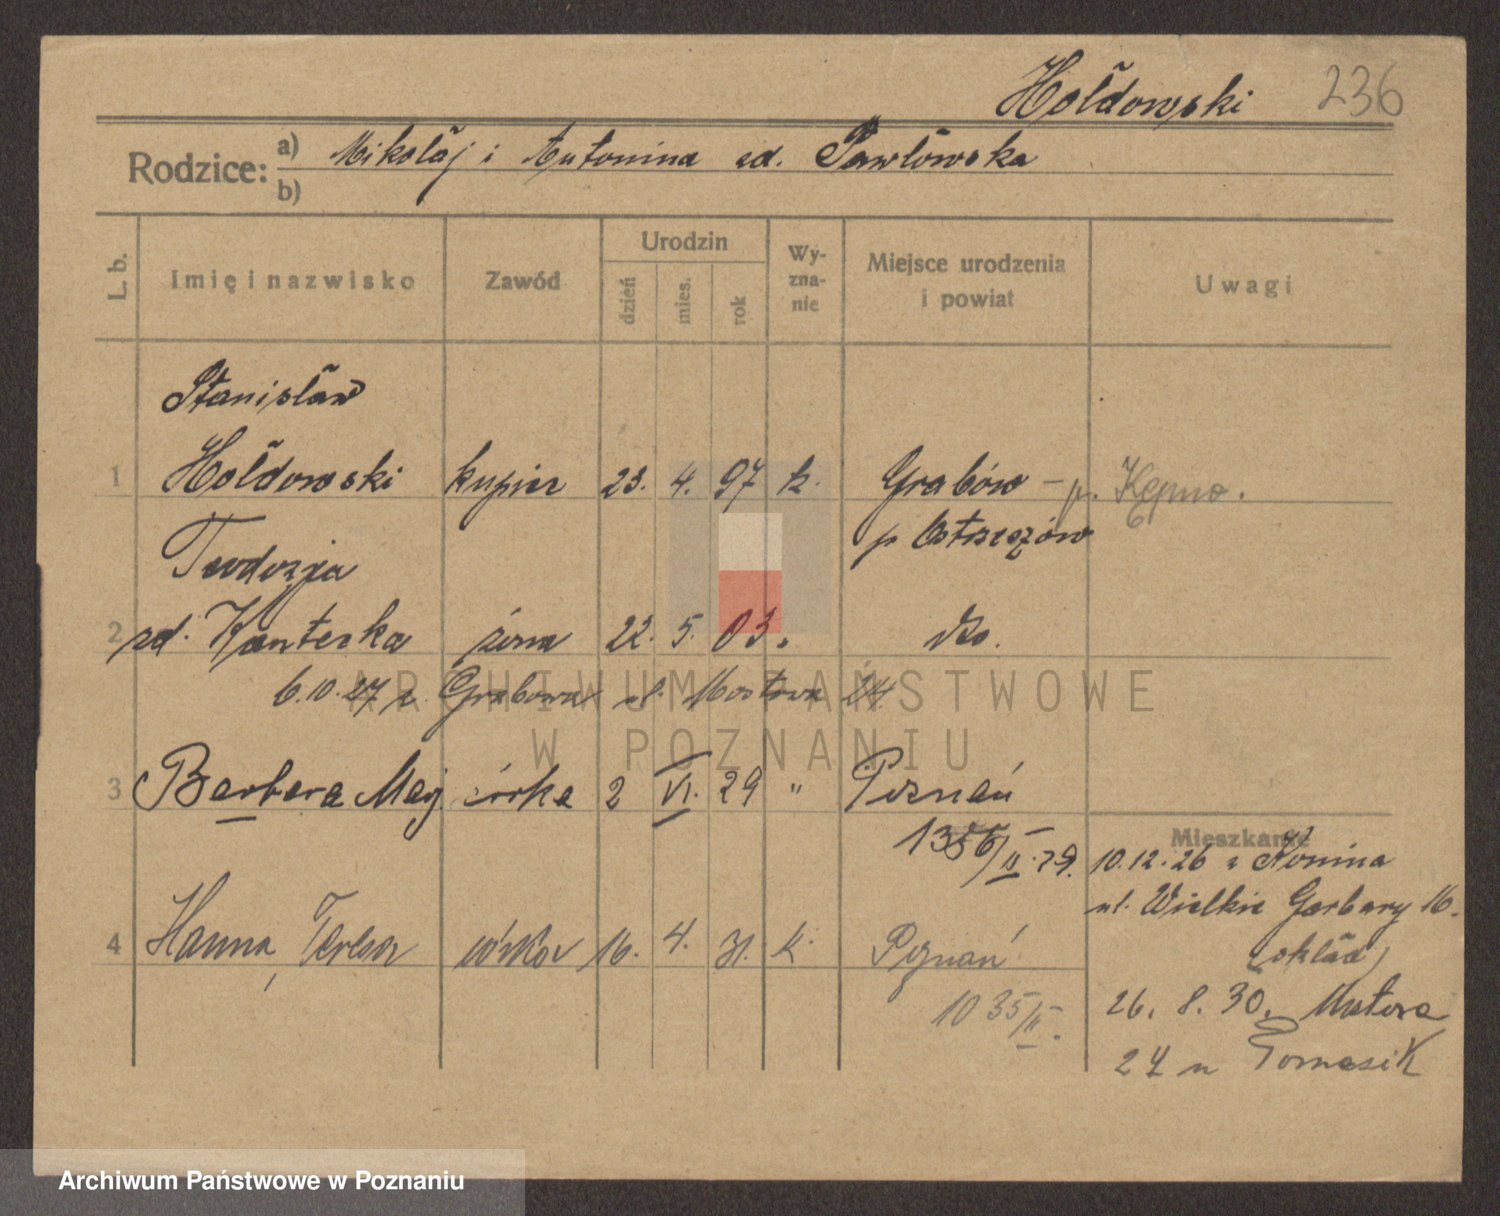 Hołdowski 236
Rodzice: a) Mikołaj i Antonina zd. Pawłowska
b)
L. b. Imię i nazwisko Zawód Urodzin dzień mies. rok Wyznanie Miejsce urodzenia i powiat Uwagi
Stanisław
1 Hołdowski kupiec 23. 4. 97 k. Grabów – p. Kępno.
p Ostrzeszów
Teodozja
2 zd. Kantecka żona 22. 5. 03. dto.
6.10.27 z Grabowa ul. Mostowa 24
3 Barbara Marj córka 2 VI. 29 " Poznań
Mieszkanie
1356/II.29. 10.12.26 z Konina
ul. Wielkie Garbary 16.
(skład)
4 Hanna, Teresa córka 16. 4. 31. k. Poznań
1035/II. 26. 8. 30. Mostowa
27 u Tomasik
ARCHIWUM PAŃSTWOWE
W POZNANIU
Archiwum Państwowe w Poznaniu